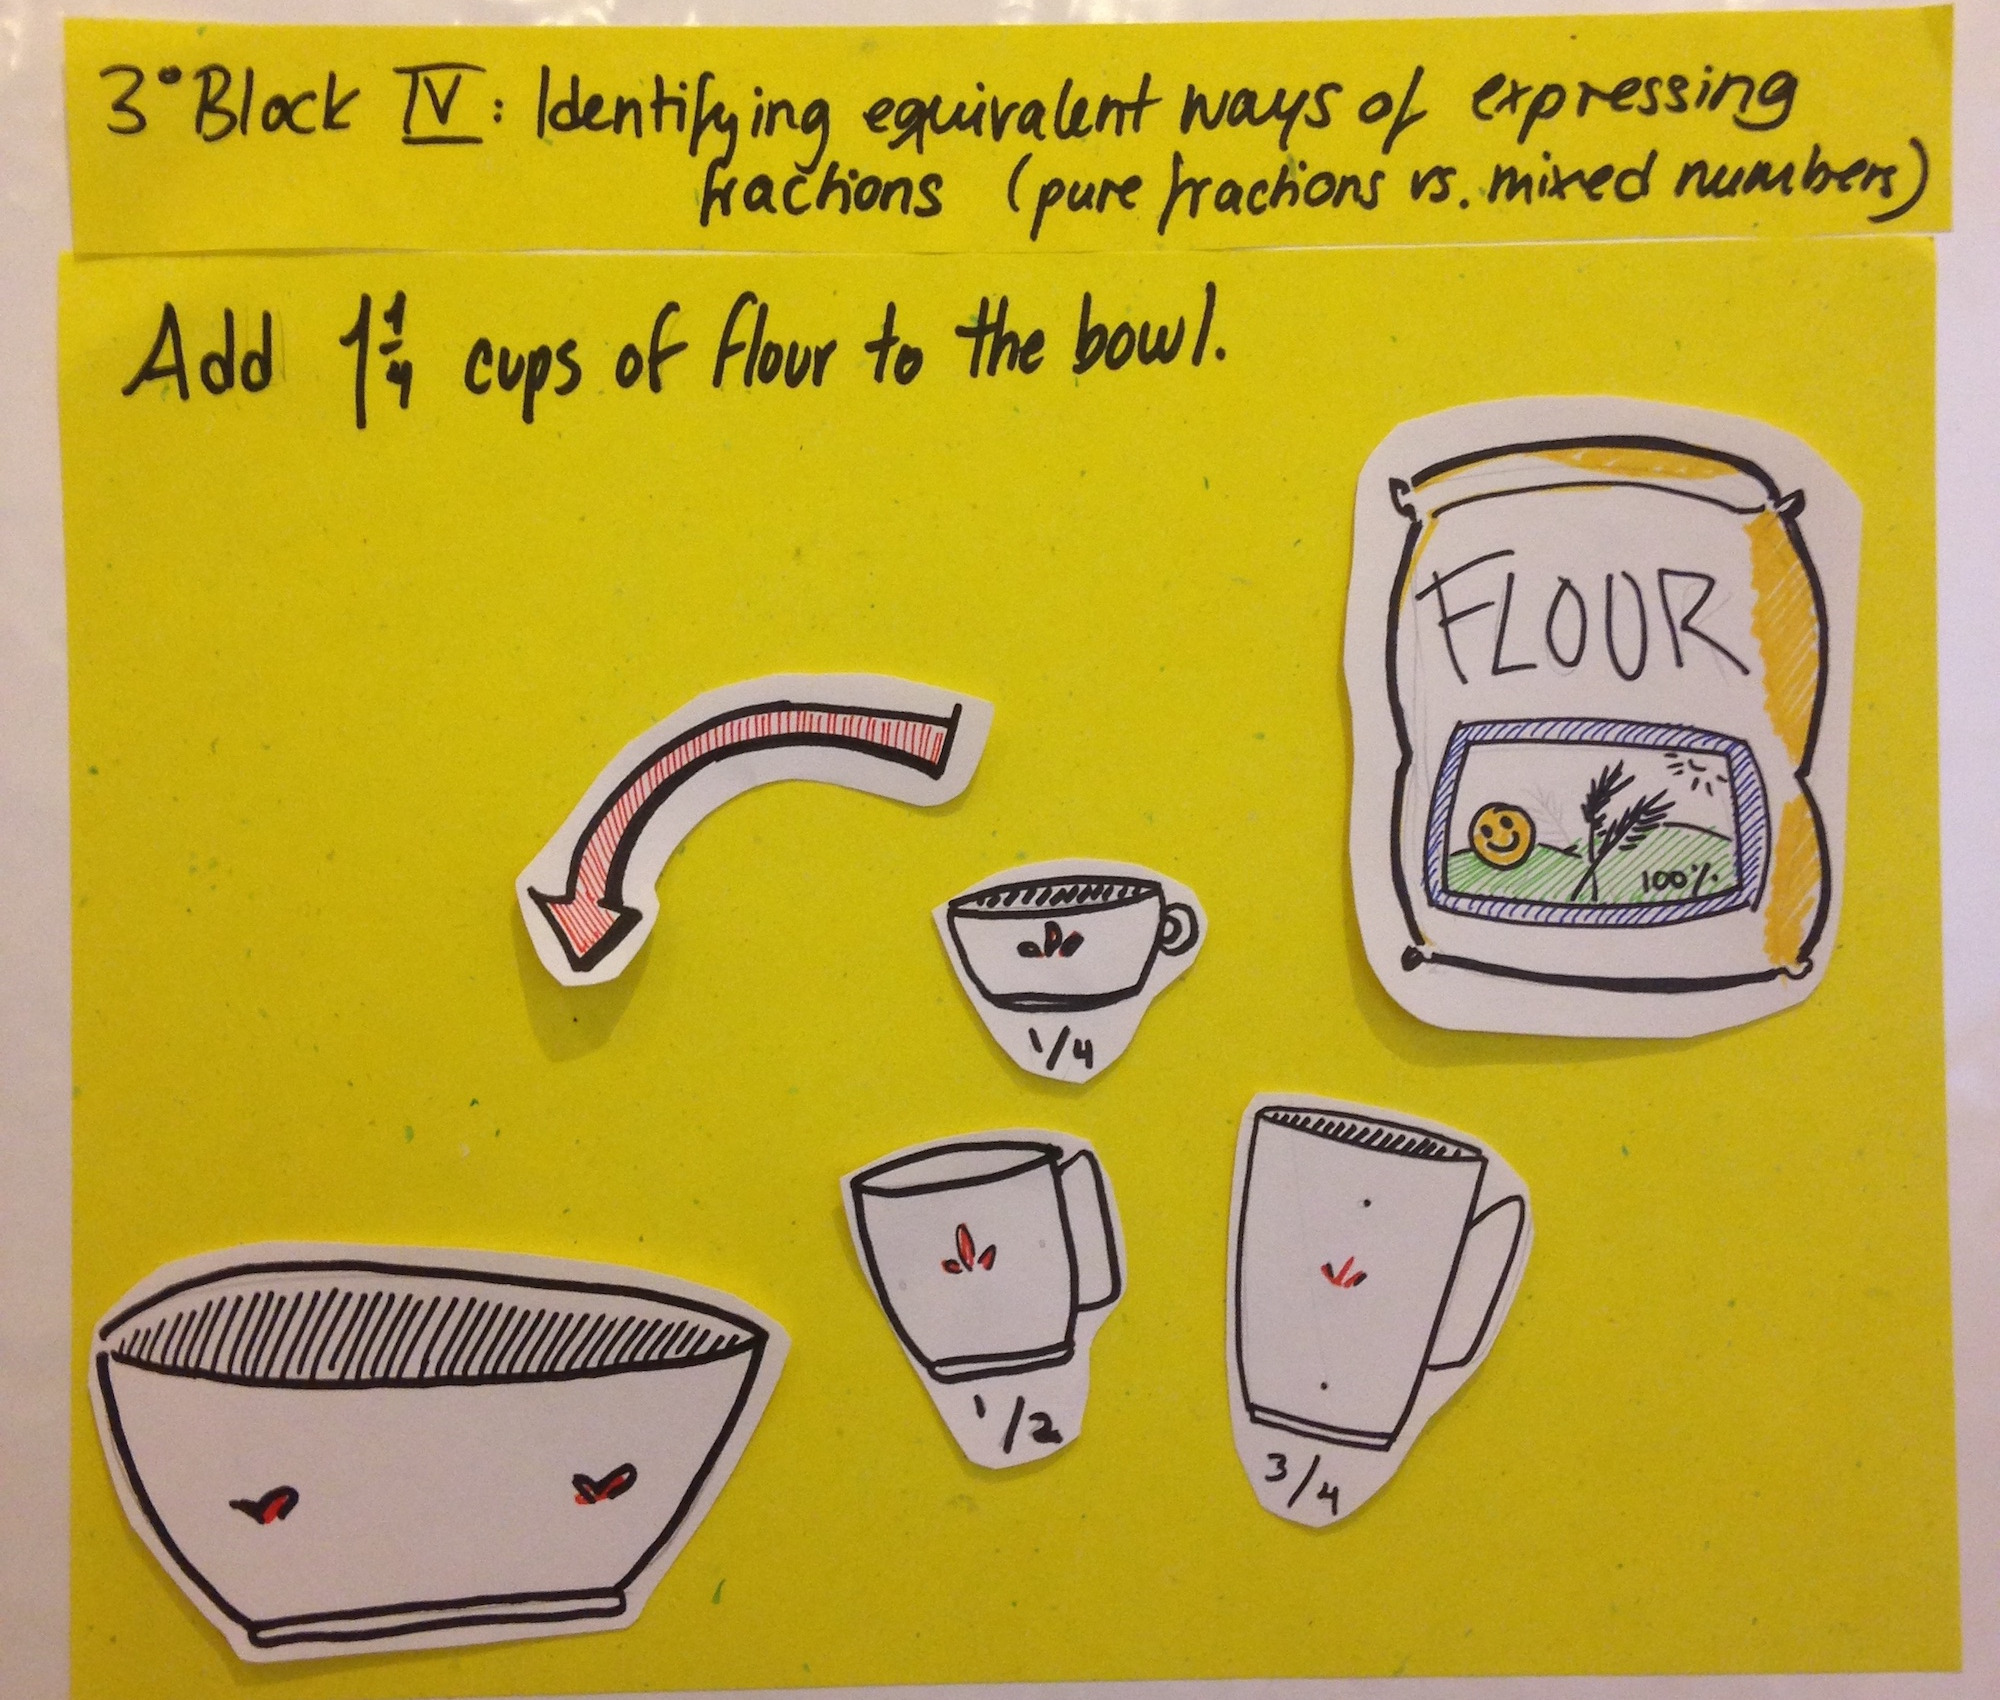 3° Block IV: Identifying equivalent ways of expressing
fractions (pure fractions vs. mixed numbers)
Add 1 1/4 cups of flour to the bowl.
FLOUR
100%
1/4
1/2
3/4